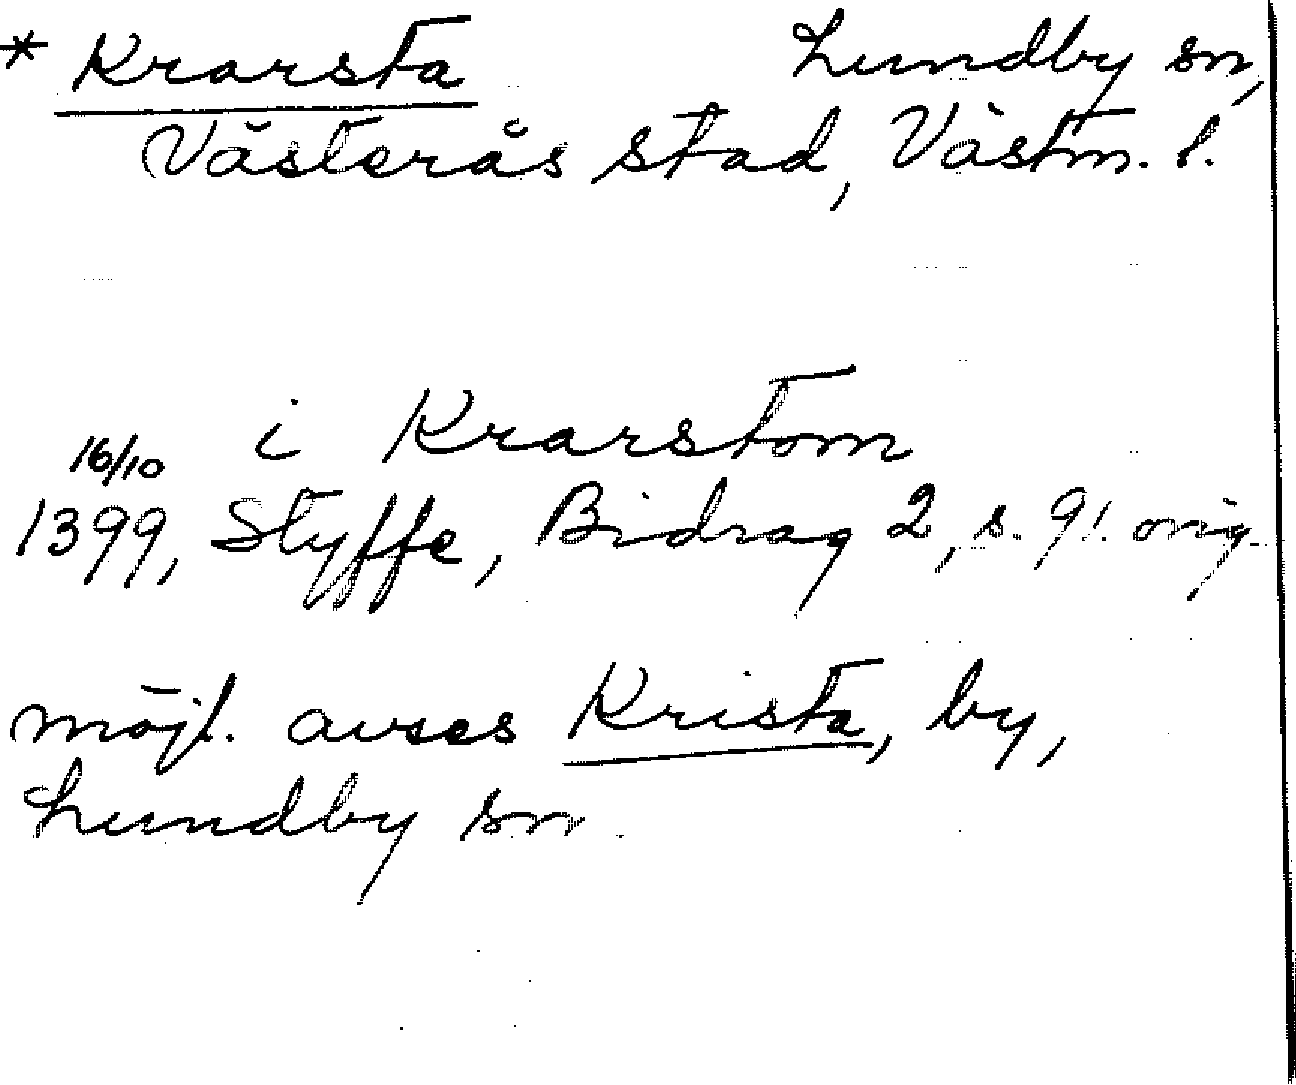 * Krarsta Lundby sn,
Västerås stad, Västm. l.
i Krarstom
16/10
1399, Styffe, Bidrag 2, s. 91. orig.
möjl. avses Krista, by,
Lundby sn.